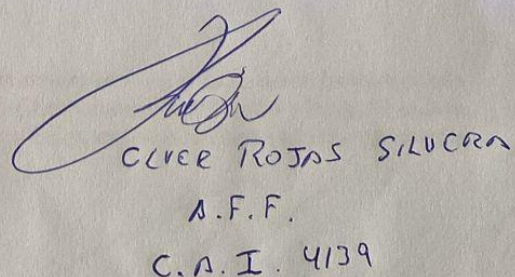 CLVER ROJAS SILVERA
A.F.F.
C.A.I. 4139